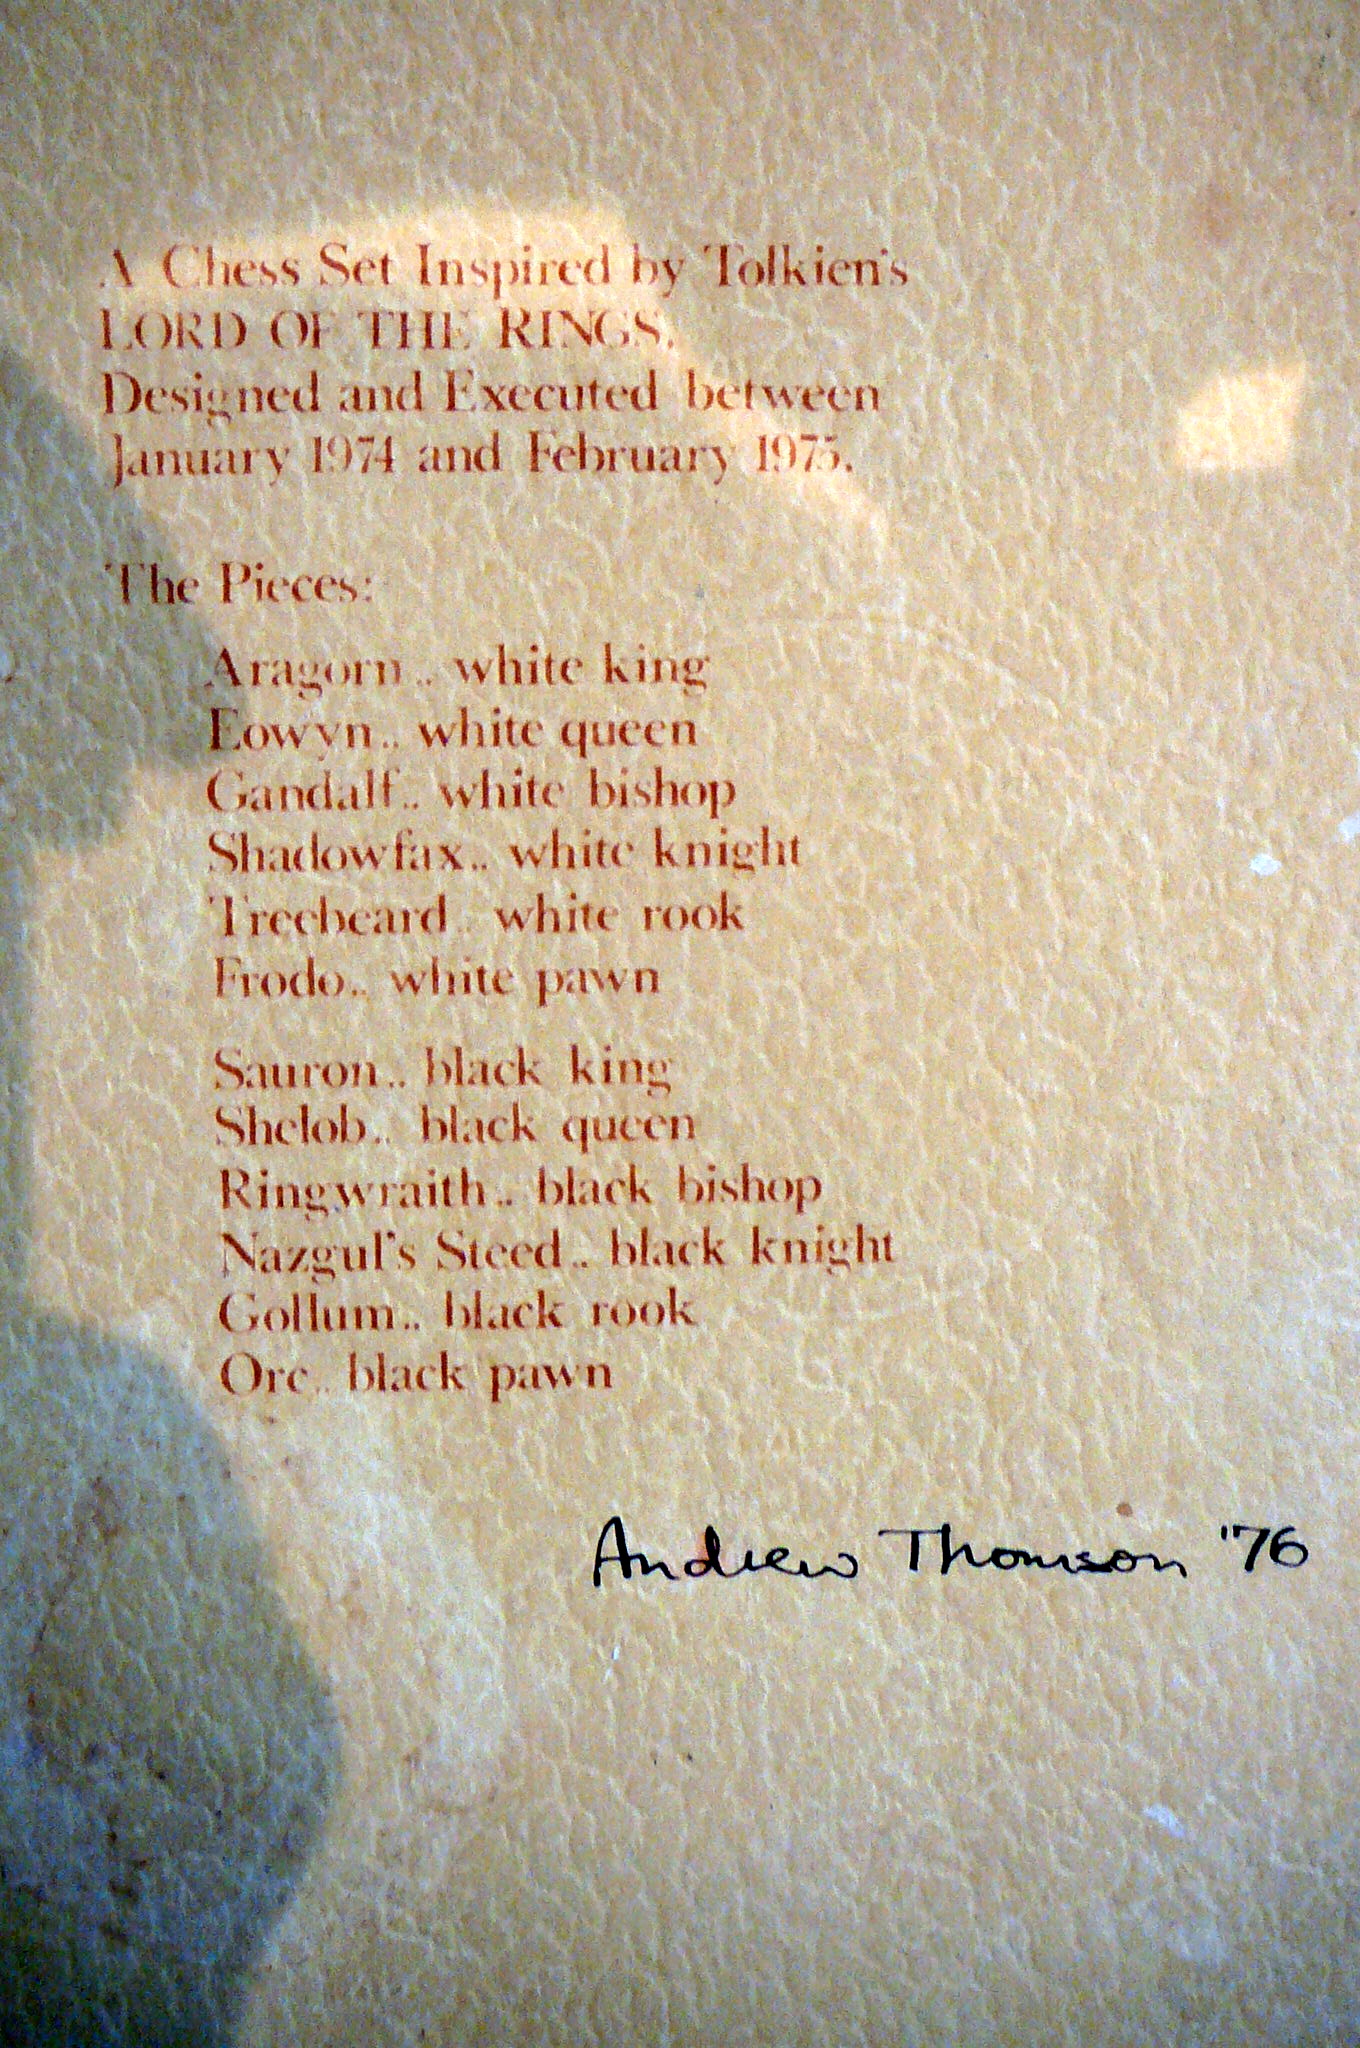 A Chess Set Inspired by Tolkien's
LORD OF THE RINGS.
Designed and Executed between
January 1974 and February 1975.
The Pieces:
Aragorn.. white king
Eowyn.. white queen
Gandalf.. white bishop
Shadowfax.. white knight
Treebeard.. white rook
Frodo.. white pawn
Sauron.. black king
Shelob.. black queen
Ringwraith.. black bishop
Nazgul's Steed.. black knight
Gollum.. black rook
Orc.. black pawn
Andrew Thomson '76